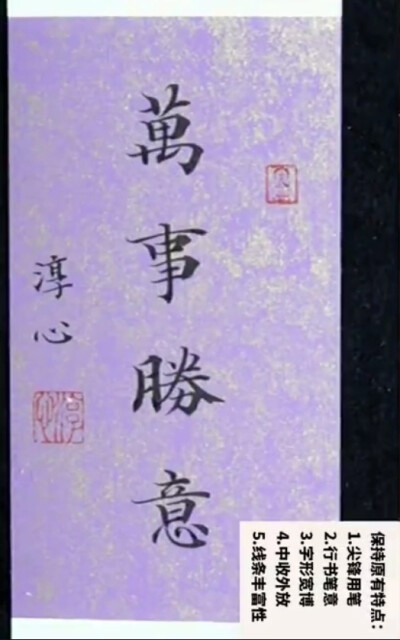 萬事勝意
淳心
保持原有特点：
1.尖锋用笔
2.行书笔意
3.字形宽博
4.中收外放
5.线条丰富性